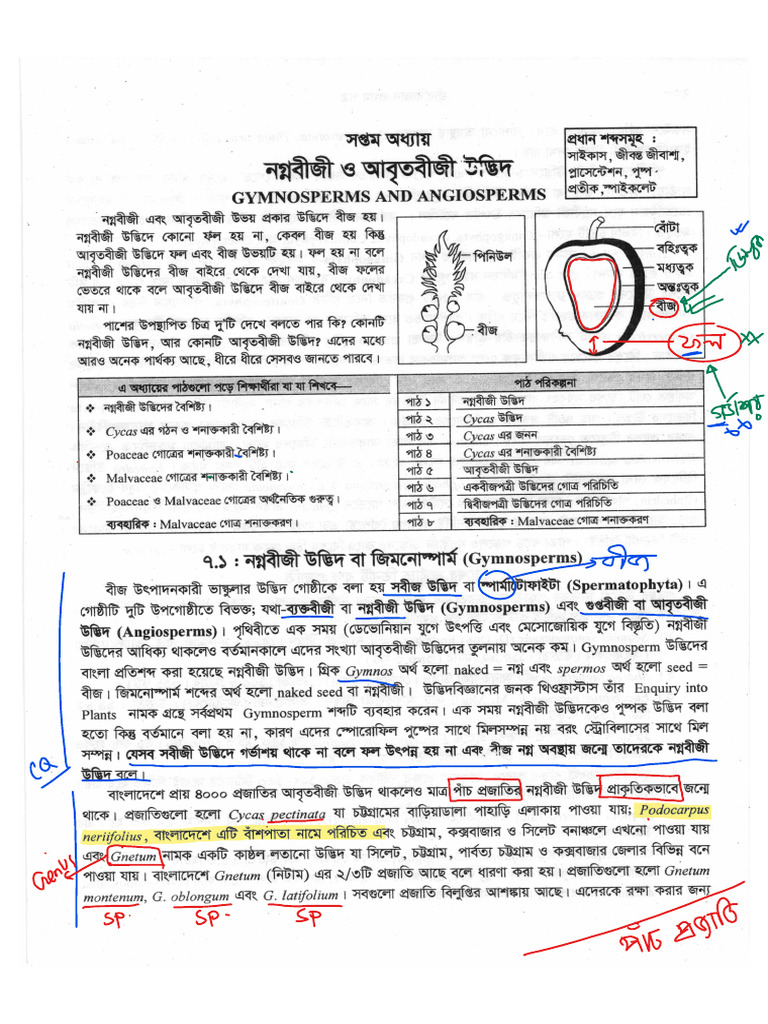 সপ্তম অধ্যায়
নগ্নবীজী ও আবৃতবীজী উদ্ভিদ
GYMNOSPERMS AND ANGIOSPERMS
প্রধান শব্দসমূহ :
সাইকাস, জীবন্ত জীবাশ্ম,
প্লাসেন্টেশন, পুষ্প-
প্রতীক, স্পাইকলেট
নগ্নবীজী এবং আবৃতবীজী উভয় প্রকার উদ্ভিদে বীজ হয়।
নগ্নবীজী উদ্ভিদে কোনো ফল হয় না, কেবল বীজ হয় কিন্তু
আবৃতবীজী উদ্ভিদে ফল এবং বীজ উভয়টি হয়। ফল হয় না বলে
নগ্নবীজী উদ্ভিদের বীজ বাইরে থেকে দেখা যায়, বীজ ফলের
ভেতরে থাকে বলে আবৃতবীজী উদ্ভিদে বীজ বাইরে থেকে দেখা
যায় না।
পাশের উপস্থাপিত চিত্র দু'টি দেখে বলতে পার কি? কোনটি
নগ্নবীজী উদ্ভিদ, আর কোনটি আবৃতবীজী উদ্ভিদ? এদের মধ্যে
আরও অনেক পার্থক্য আছে, ধীরে ধীরে সেসব জানতে পারবে।
পিনিউল
বীজ
বোঁটা
বহিঃত্বক
মধ্যত্বক
অন্তঃত্বক
বীজ
ডিম্বক
ফল
গর্ভাশয়
এ অধ্যায়ের পাঠগুলো পড়ে শিক্ষার্থীরা যা যা শিখবে—
❖ নগ্নবীজী উদ্ভিদের বৈশিষ্ট্য।
❖ Cycas এর গঠন ও শনাক্তকারী বৈশিষ্ট্য।
❖ Poaceae গোত্রের শনাক্তকারী বৈশিষ্ট্য।
❖ Malvaceae গোত্রের শনাক্তকারী বৈশিষ্ট্য।
❖ Poaceae ও Malvaceae গোত্রের অর্থনৈতিক গুরুত্ব।
ব্যবহারিক : Malvaceae গোত্র শনাক্তকরণ।
পাঠ পরিকল্পনা
পাঠ ১ নগ্নবীজী উদ্ভিদ
পাঠ ২ Cycas উদ্ভিদ
পাঠ ৩ Cycas এর জনন
পাঠ ৪ Cycas এর শনাক্তকারী বৈশিষ্ট্য
পাঠ ৫ আবৃতবীজী উদ্ভিদ
পাঠ ৬ একবীজপত্রী উদ্ভিদের গোত্র পরিচিতি
পাঠ ৭ দ্বিবীজপত্রী উদ্ভিদের গোত্র পরিচিতি
পাঠ ৮ ব্যবহারিক : Malvaceae গোত্র শনাক্তকরণ
৭.১ : নগ্নবীজী উদ্ভিদ বা জিমনোস্পার্ম (Gymnosperms)
বীজ
বীজ উৎপাদনকারী ভাস্কুলার উদ্ভিদ গোষ্ঠীকে বলা হয় সবীজ উদ্ভিদ বা স্পার্মাটোফাইটা (Spermatophyta)। এ
গোষ্ঠীটি দুটি উপগোষ্ঠীতে বিভক্ত; যথা-ব্যক্তবীজী বা নগ্নবীজী উদ্ভিদ (Gymnosperms) এবং গুপ্তবীজী বা আবৃতবীজী
উদ্ভিদ (Angiosperms)। পৃথিবীতে এক সময় (ডেভোনিয়ান যুগে উৎপত্তি এবং মেসোজোয়িক যুগে বিস্তৃতি) নগ্নবীজী
উদ্ভিদের আধিক্য থাকলেও বর্তমানকালে এদের সংখ্যা আবৃতবীজী উদ্ভিদের তুলনায় অনেক কম। Gymnosperm উদ্ভিদের
বাংলা প্রতিশব্দ করা হয়েছে নগ্নবীজী উদ্ভিদ। গ্রিক Gymnos অর্থ হলো naked = নগ্ন এবং spermos অর্থ হলো seed =
বীজ। জিমনোস্পার্ম শব্দের অর্থ হলো naked seed বা নগ্নবীজী। উদ্ভিদবিজ্ঞানের জনক থিওফ্রাস্টাস তাঁর Enquiry into
Plants নামক গ্রন্থে সর্বপ্রথম Gymnosperm শব্দটি ব্যবহার করেন। এক সময় নগ্নবীজী উদ্ভিদকেও পুষ্পক উদ্ভিদ বলা
হতো কিন্তু বর্তমানে বলা হয় না, কারণ এদের স্পোরোফিল পুষ্পের সাথে মিলসম্পন্ন নয় বরং স্ট্রোবিলাসের সাথে মিল
সম্পন্ন। যেসব সবীজী উদ্ভিদে গর্ভাশয় থাকে না বলে ফল উৎপন্ন হয় না এবং বীজ নগ্ন অবস্থায় জন্মে তাদেরকে নগ্নবীজী
উদ্ভিদ বলে।
CQ
বাংলাদেশে প্রায় ৪০০০ প্রজাতির আবৃতবীজী উদ্ভিদ থাকলেও মাত্র পাঁচ প্রজাতির নগ্নবীজী উদ্ভিদ প্রাকৃতিকভাবে জন্মে
থাকে। প্রজাতিগুলো হলো Cycas pectinata যা চট্টগ্রামের বাড়িয়াডালা পাহাড়ি এলাকায় পাওয়া যায়; Podocarpus
neriifolius, বাংলাদেশে এটি বাঁশপাতা নামে পরিচিত এবং চট্টগ্রাম, কক্সবাজার ও সিলেট বনাঞ্চলে এখনো পাওয়া যায়
এবং Gnetum নামক একটি কাষ্ঠল লতানো উদ্ভিদ যা সিলেট, চট্টগ্রাম, পার্বত্য চট্টগ্রাম ও কক্সবাজার জেলার বিভিন্ন বনে
Genus
পাওয়া যায়। বাংলাদেশে Gnetum (নিটাম) এর ২/৩টি প্রজাতি আছে বলে ধারণা করা হয়। প্রজাতিগুলো হলো Gnetum
montenum, G. oblongum এবং G. latifolium। সবগুলো প্রজাতি বিলুপ্তির আশঙ্কায় আছে। এদেরকে রক্ষা করার জন্য
SP SP SP
পাঁচ প্রজাতি